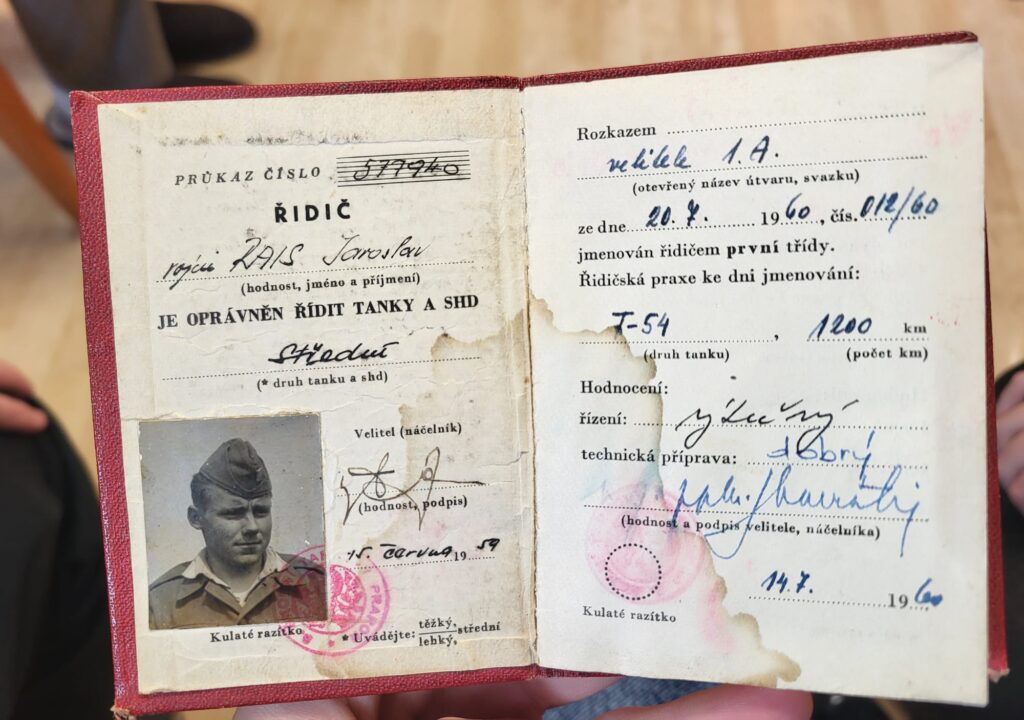 PRŮKAZ ČÍSLO 577940
ŘIDIČ
RAIS Jaroslav
(hodnost, jméno a příjmení)
JE OPRÁVNĚN ŘÍDIT TANKY A SHD
Střední
(* druh tanku a shd)
Velitel (náčelník)
(hodnost, podpis)
15. června 1959
Kulaté razítko
* Uvádějte: těžký, střední
lehký,
Rozkazem
velitele 1.A.
(otevřený název útvaru, svazku)
ze dne 20. 7. 1960, čís. 012/60
jmenován řidičem první třídy.
Řidičská praxe ke dni jmenování:
T-54, 1200 km
(druh tanku) (počet km)
Hodnocení:
řízení: výtečný
technická příprava: dobrý
(hodnost a podpis velitele, náčelníka)
14.7. 1960
Kulaté razítko